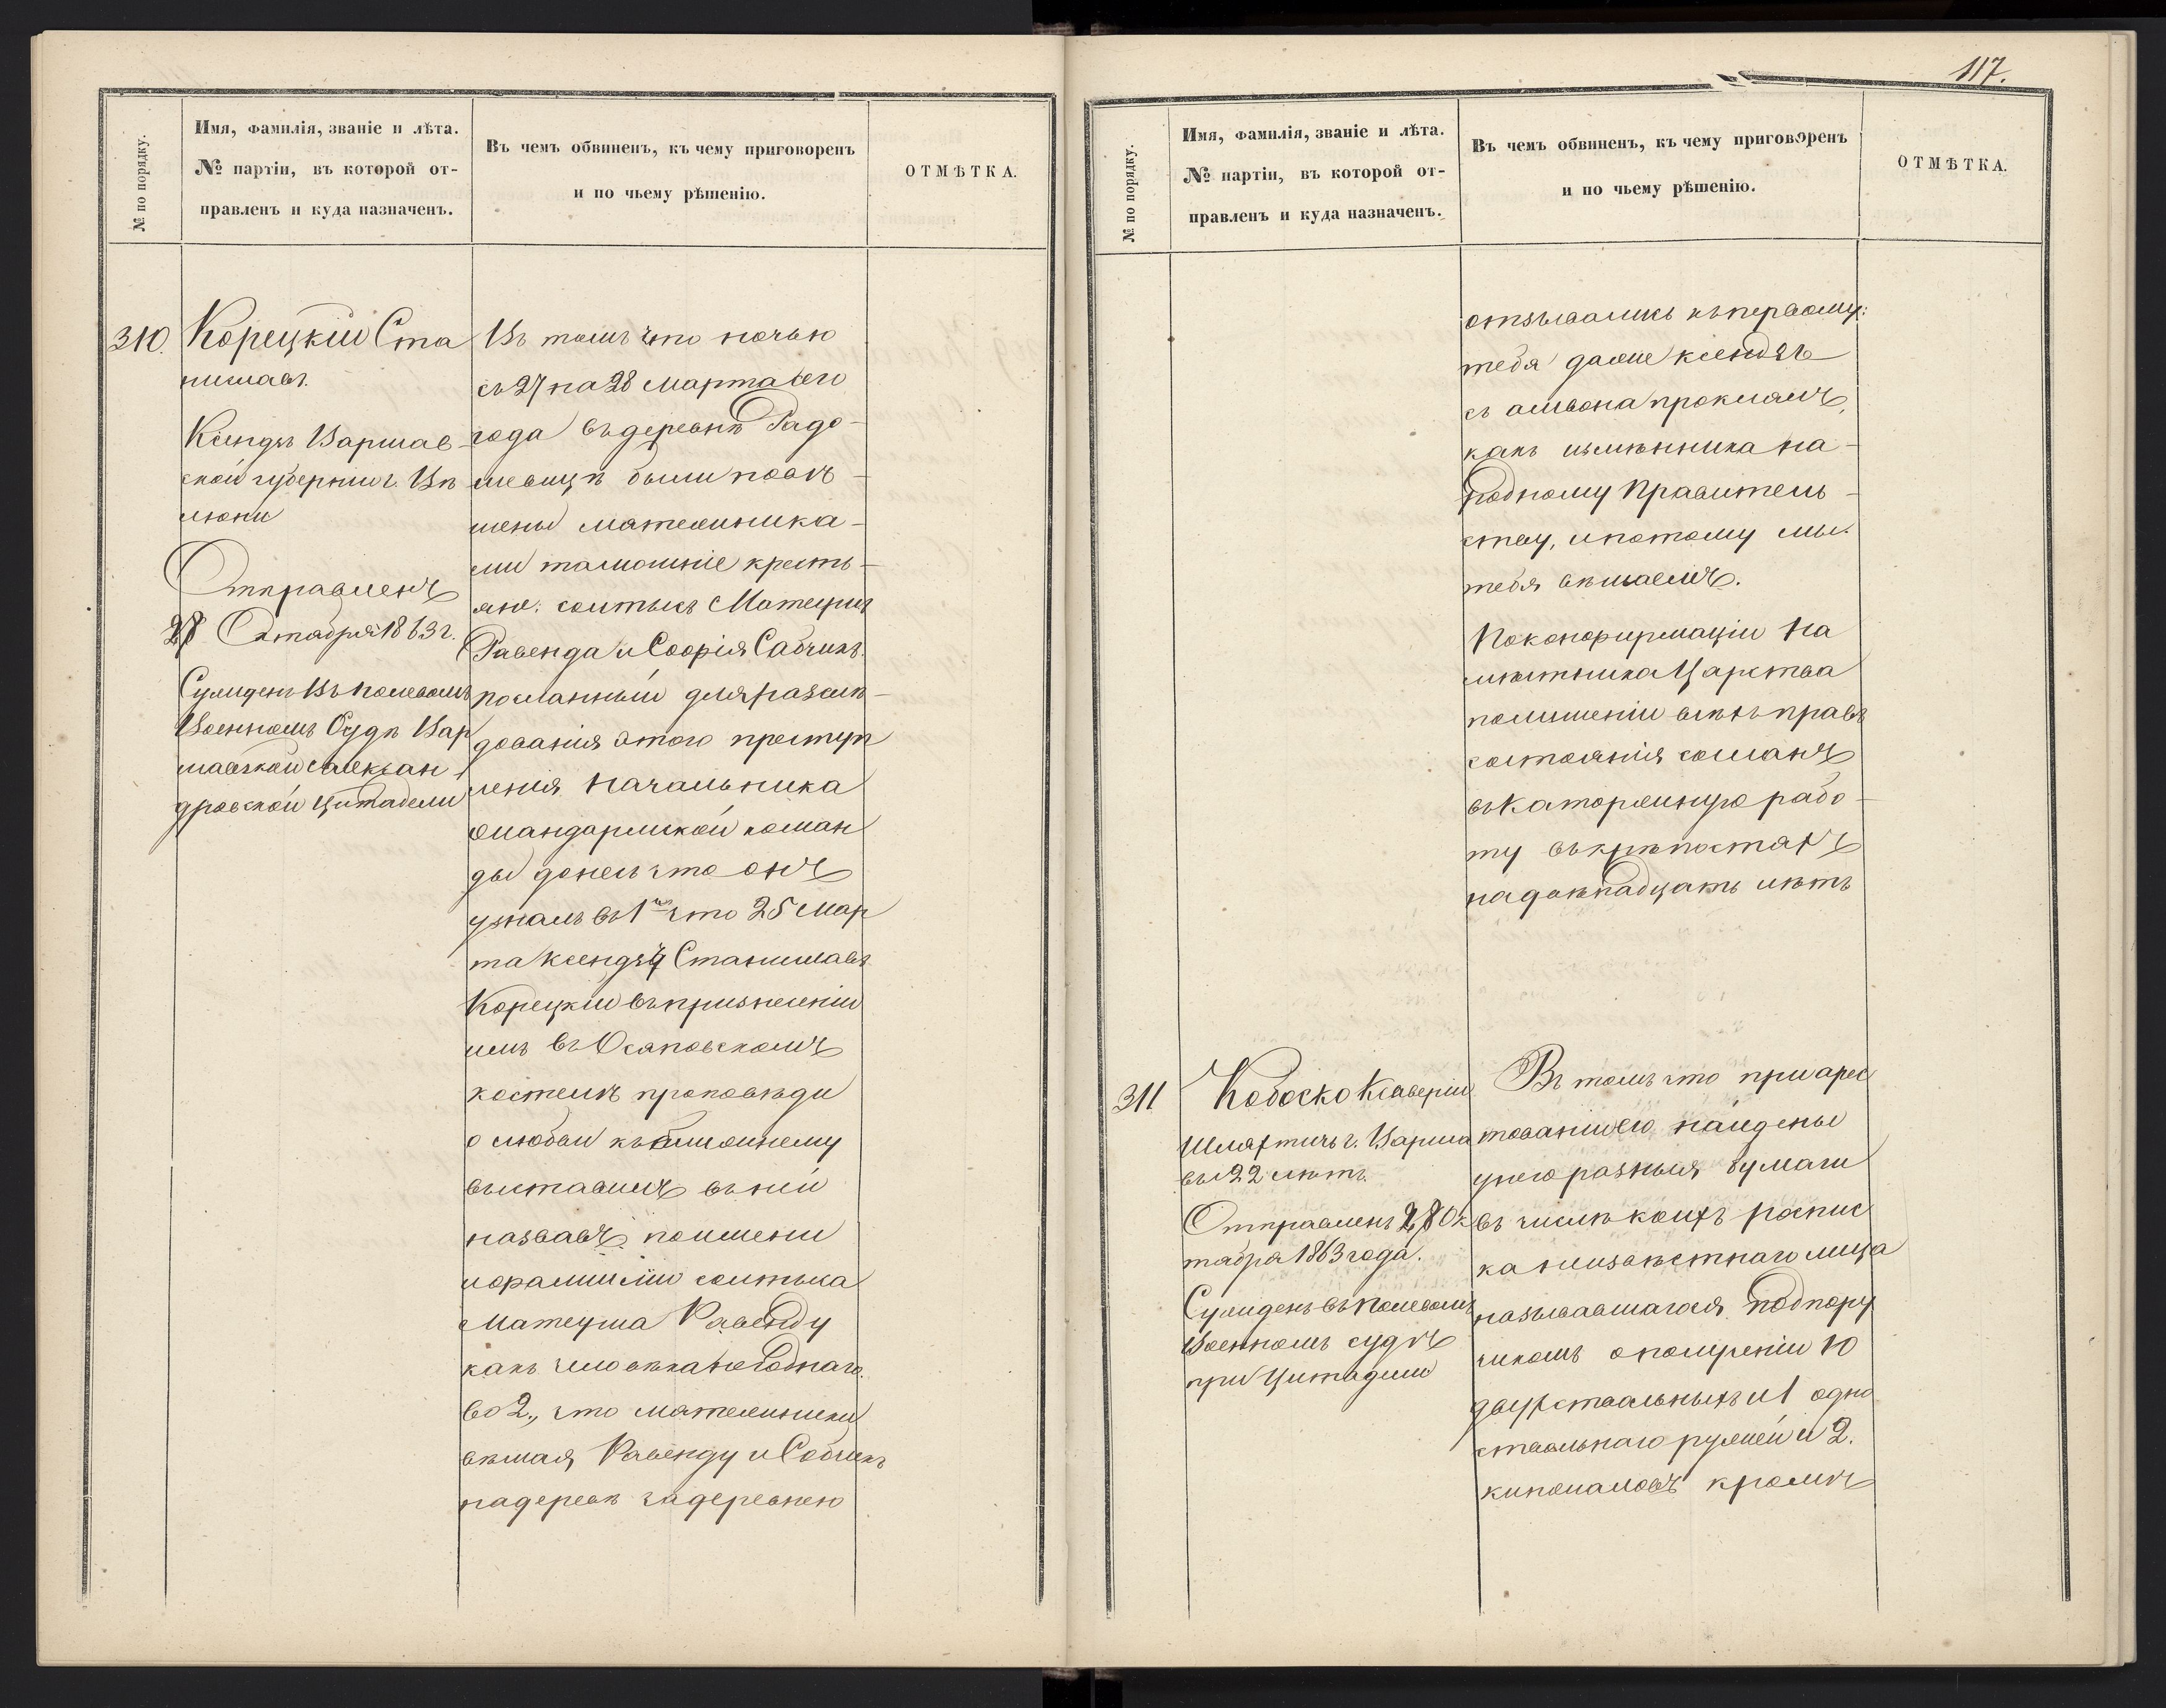 № по порядку.
Имя, фамилія, званіе и лѣта.
№ партіи, въ которой от-
правленъ и куда назначенъ.
Въ чемъ обвиненъ, къ чему приговоренъ
и по чьему рѣшенію.
ОТМѢТКА.
310.
Корецкій Ста
ниславъ.
Ксендзъ Варшав-
ской губерніи г.
Отправленъ
28 Октября 1863 г.
Сужденъ въ полевомъ
Военномъ Судѣ Вар
шавской Алексан
дровской Цитадели
Въ томъ что ночью
съ 27 на 28 марта сего
года въ деревнѣ Радо-
были повѣ-
шены мятежника-
ми тамошніе кресть-
яне: солтысъ Матеушъ
Равенда и Софія Сабчикъ.
посланный для развѣ-
дованія этого преступ
ленія начальника
жандармской коман
ды донесъ что онъ
узналъ въ 1хъ что 25 Мар
та Ксендзъ Станиславъ
Корецкій въ призненіи
имъ въ Осяковскомъ
костелѣ проповѣди
о любви къ ближнему
выставилъ въ ней
назвавъ поимени
и фамиліи солтыса
Матеуша Равенду
какъ человѣка негоднаго.
во 2., что мятежники
вѣшая Равенду и Собчикъ
на деревѣ за деревнею
117.
№ по порядку.
Имя, фамилія, званіе и лѣта.
№ партіи, въ которой от-
правленъ и куда назначенъ.
Въ чемъ обвиненъ, къ чему приговоренъ
и по чьему рѣшенію.
ОТМѢТКА.
отзывались къ первому:
тебя даже ксендзъ
съ амвона проклялъ,
какъ измѣнника на-
родному Правитель-
ству, и потому мы
тебя вѣшаемъ.
По конфирмаціи На
мѣстника Царства
по лишеніи всѣхъ правъ
состоянія сосланъ
въ каторжную рабо-
ту въ крѣпостяхъ
на двѣнадцать лѣтъ
311
Кобоско Ксаверій
Шляхтичъ г. Варша
вы 22 лѣтъ.
Отправленъ 28 Ок
тября 1863 года.
Сужденъ въ Полевомъ
Военномъ судѣ
при Цитадели
Въ томъ что при арес
тованіи его найдены
у него разныя бумаги
въ числѣ коихъ роспис
ка неизвѣстнаго лица
называвшагося подпору
чикомъ о полученіи 10
двухствольныхъ и 1 одно
ствольнаго ружей и 2.
кинжаловъ кромѣ